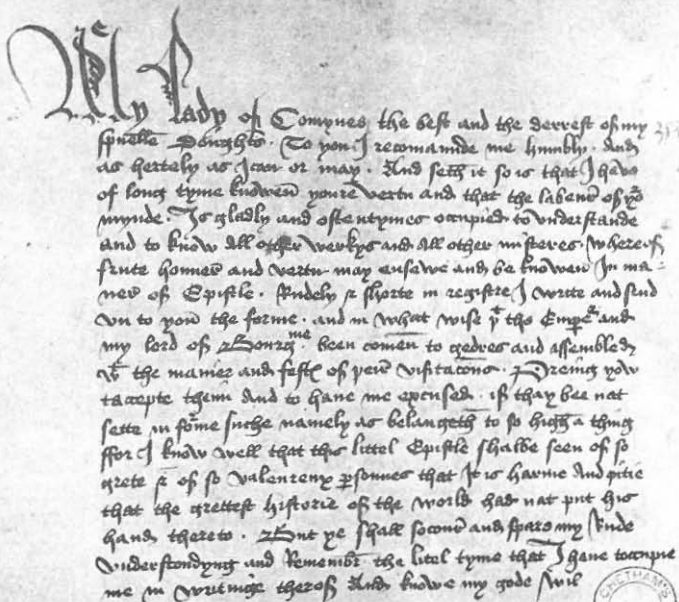 My lady of Comynes the best and the derrest of my
spūelle Doughtr̄. To you I recomaunde me humbly. And
as hertely as I can or may. And seth it so is that I have
of long tyme knowen youre vertu and that the labour of yor
mynde. Is gladly and oftentymes occupied to understande
and to know all other werkys and all other misteres. Where of
frute honner and vertu may ensewe and be knowen In ma=
ner of Epistle. Rudely & shorte in registre I write and send
un to you the forme. and in what wise yt tho Emper and
my lord of Bourgme been comen to gedres and assembled
wt the maner and feste of yeur visitacons. Preing yow
taccepte theim And to have me excused. if thay bee nat
sette in forme suche namely as belangeth to so high a thing
ffor I know well that this littel Epistle shalbe seen of so
grete & of so valeureux psonnes that It is harme And pitie
that the grettest historie of the world had nat put his
hand thereto. But ye shall socour and spare my Rude
Understondyng and Remembr the litel tyme that I have toccupie
me in writinge therof And knowe my gode Wil
CHETHAM'S